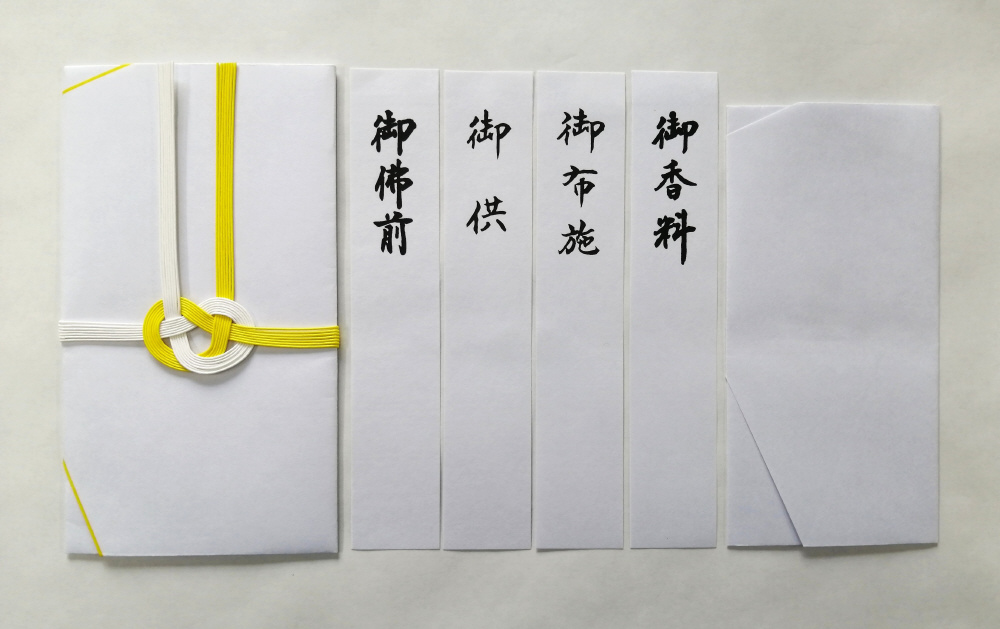 御佛前
御供
御布施
御香料